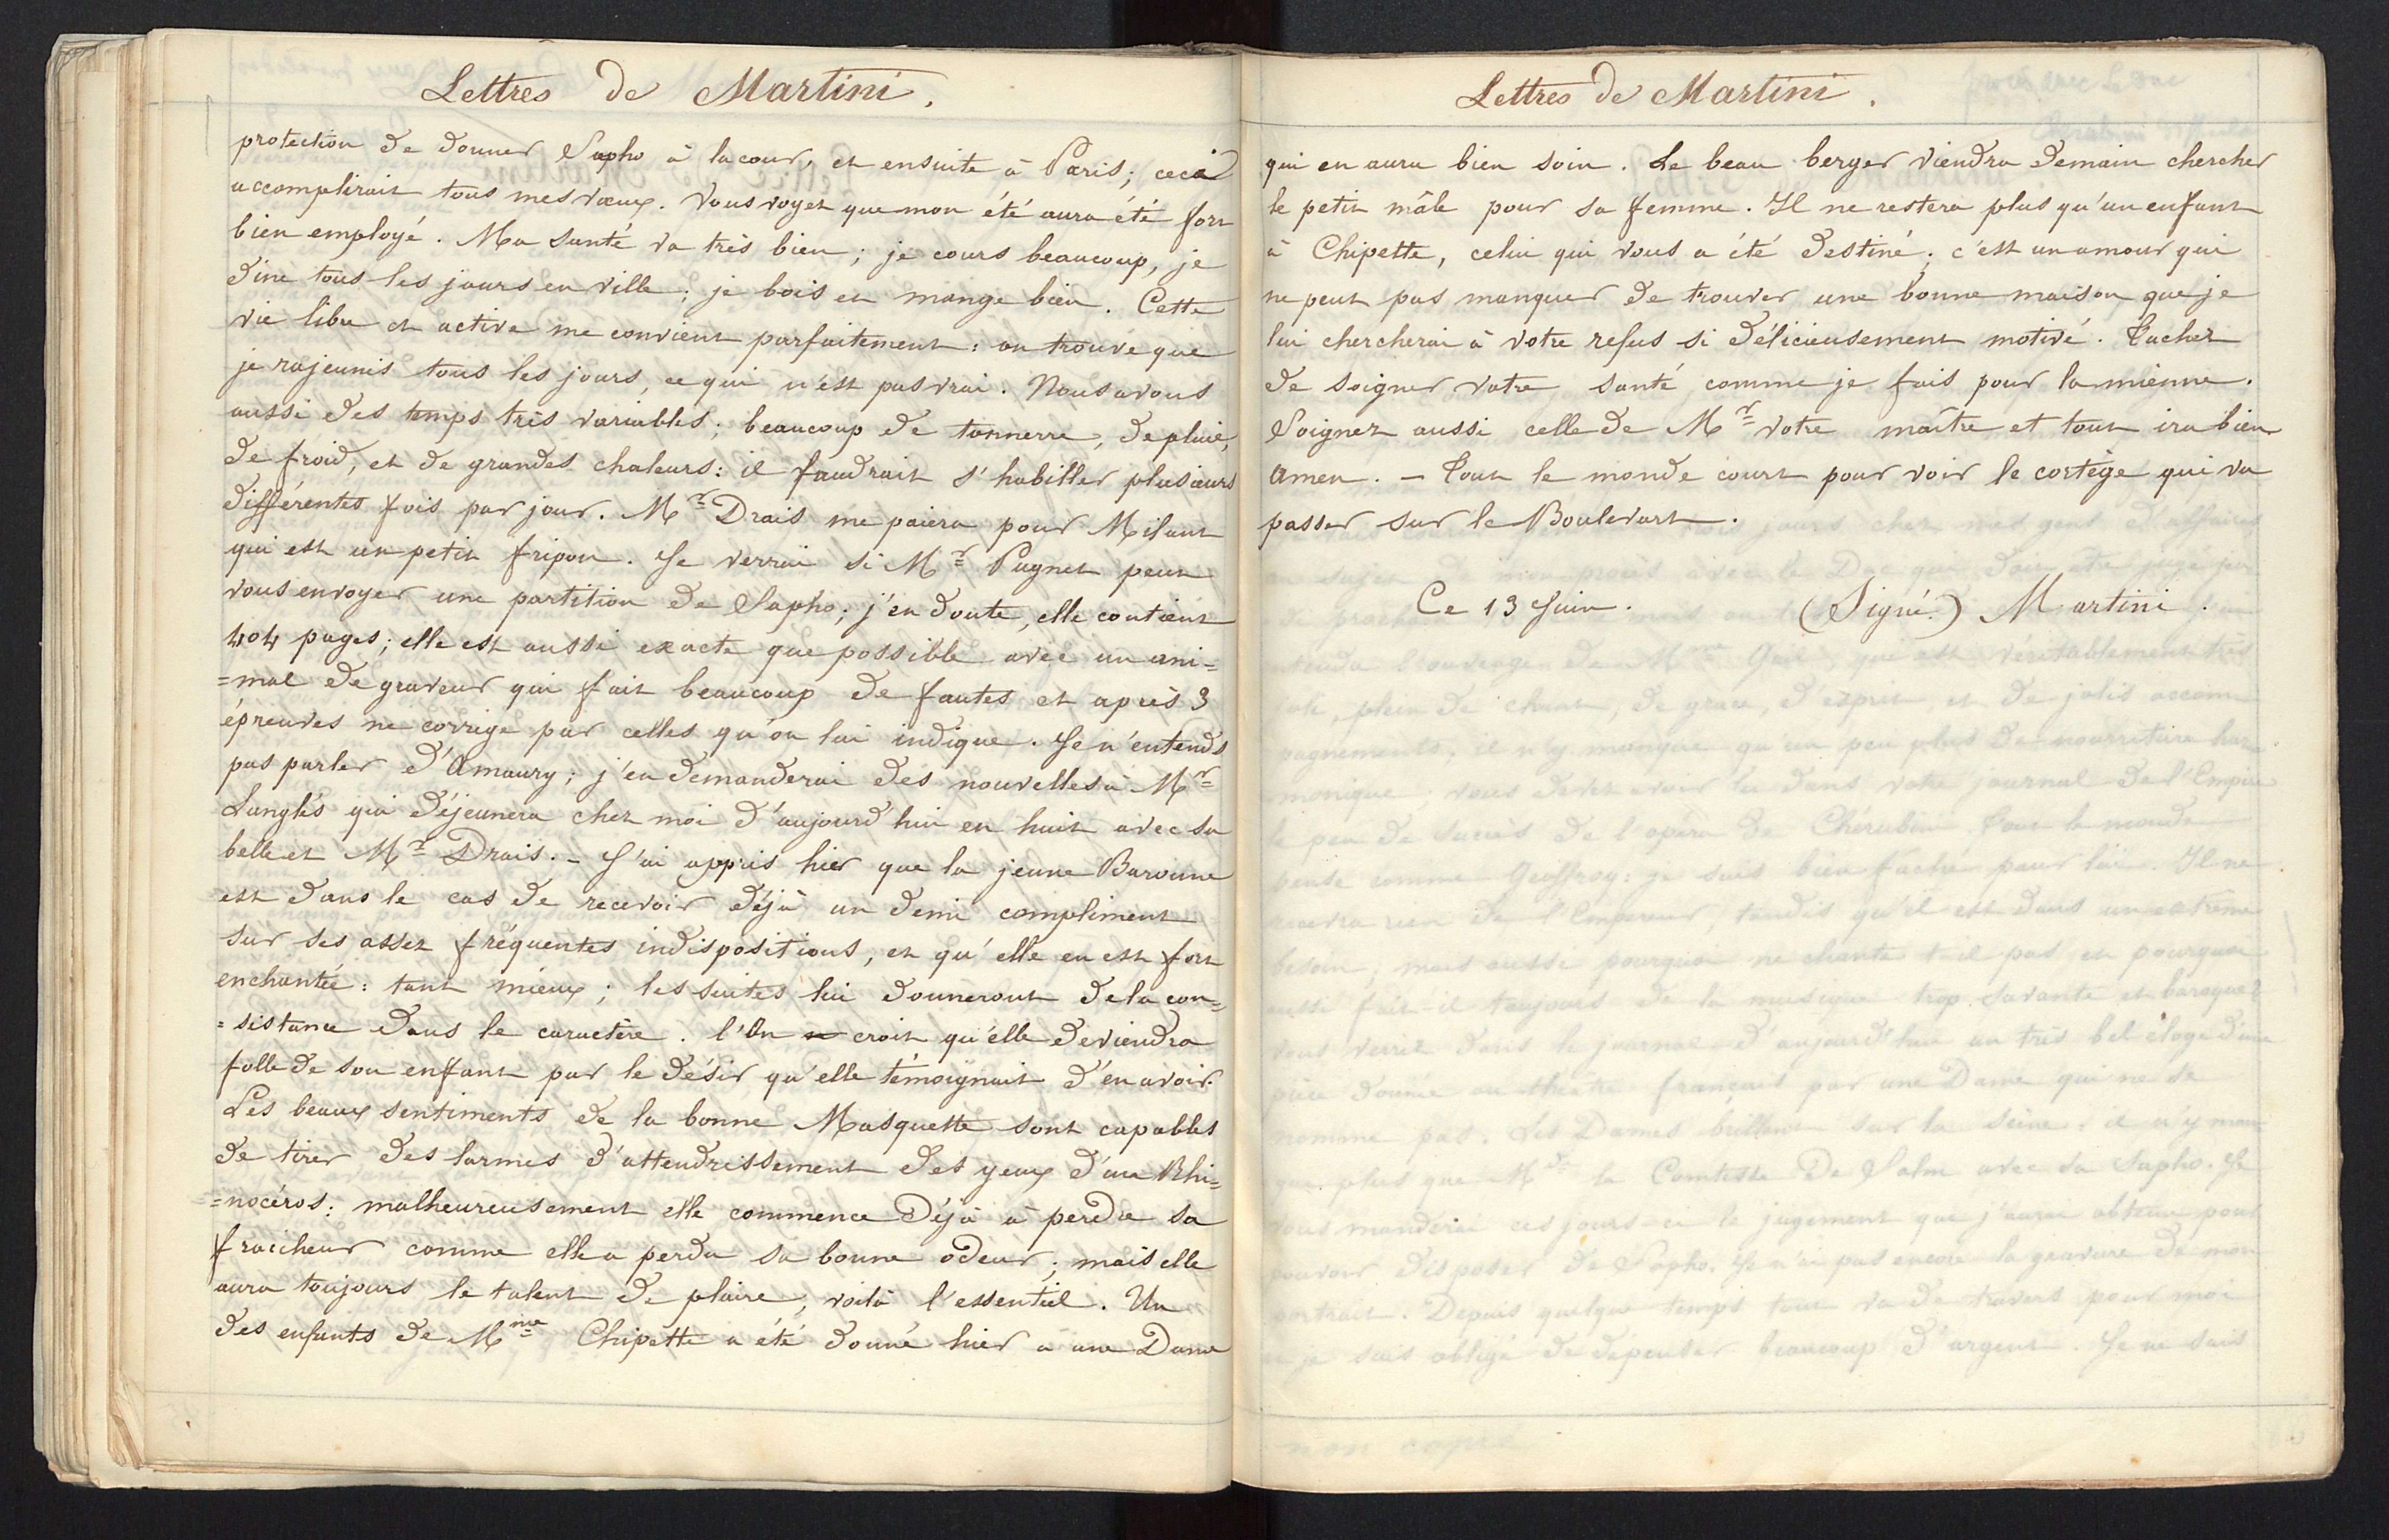 Lettres de Martini.
protection de donner Sapho à la cour, et ensuite à Paris; ceci
accomplirait tous mes vœux. Vous voyez que mon été aura été fort
bien employé. Ma santé va très bien; je cours beaucoup, je
dîne tous les jours en ville; je bois et mange bien. Cette
vie libre et active me convient parfaitement: on trouve que
je rajeunis tous les jours, ce qui n'est pas vrai. Nous avons
aussi des temps très variables; beaucoup de tonnerre, de pluie,
de froid, et de grandes chaleurs: il faudrait s'habiller plusieurs
différentes fois par jour. Mr Drais me paiera pour Milant
qui est un petit fripon. Je verrai si Mr Pugnet peut
vous envoyer une partition de Sapho; j'en doute, elle contient
404 pages; elle est aussi exacte que possible avec un ani=
=mal de graveur qui fait beaucoup de fautes et après 3
épreuves ne corrige par celles qu'on lui indique. Je n'entends
pas parler d'Amaury; j'en demanderai des nouvelles à Mr
Langlés qui déjeunera chez moi d'aujourd'hui en huit avec sa
belle et Mr Drais. – J'ai appris hier que la jeune Baronne
est dans le cas de recevoir déjà un demi compliment
sur ses assez fréquentes indispositions, et qu'elle en est fort
enchantée: tant mieux; les suites lui donneront de la con=
=sistance dans le caractère. l'On croit qu'elle deviendra
folle de son enfant par le désir qu'elle témoignait d'en avoir.
Les beaux sentiments de la bonne Masquette sont capables
de tirer des larmes d'attendrissement des yeux d'un Rhi=
=nocéros: malheureusement elle commence déjà à perdre sa
fraicheur comme elle a perdu sa bonne odeur; mais elle
aura toujours le talent de plaire, voilà l'essentiel. Un
des enfants de Mme Chipette a été donné hier à une Dame
Lettres de Martini.
qui en aura bien soin. Le beau berger viendra demain chercher
le petit mâle pour sa femme. Il ne restera plus qu'un enfant
à Chipette, celui qui vous a été destiné; c'est un amour qui
ne peut pas manquer de trouver une bonne maison que je
lui chercherai à votre refus si délicieusement motivé. Tachez
de soigner votre santé comme je fais pour la mienne.
Soignez aussi celle de Mr votre maître et tout ira bien
amen. – Tout le monde court pour voir le cortège qui va
passer sur le Boulevart.
Ce 13 Juin. (Signé) Martini.